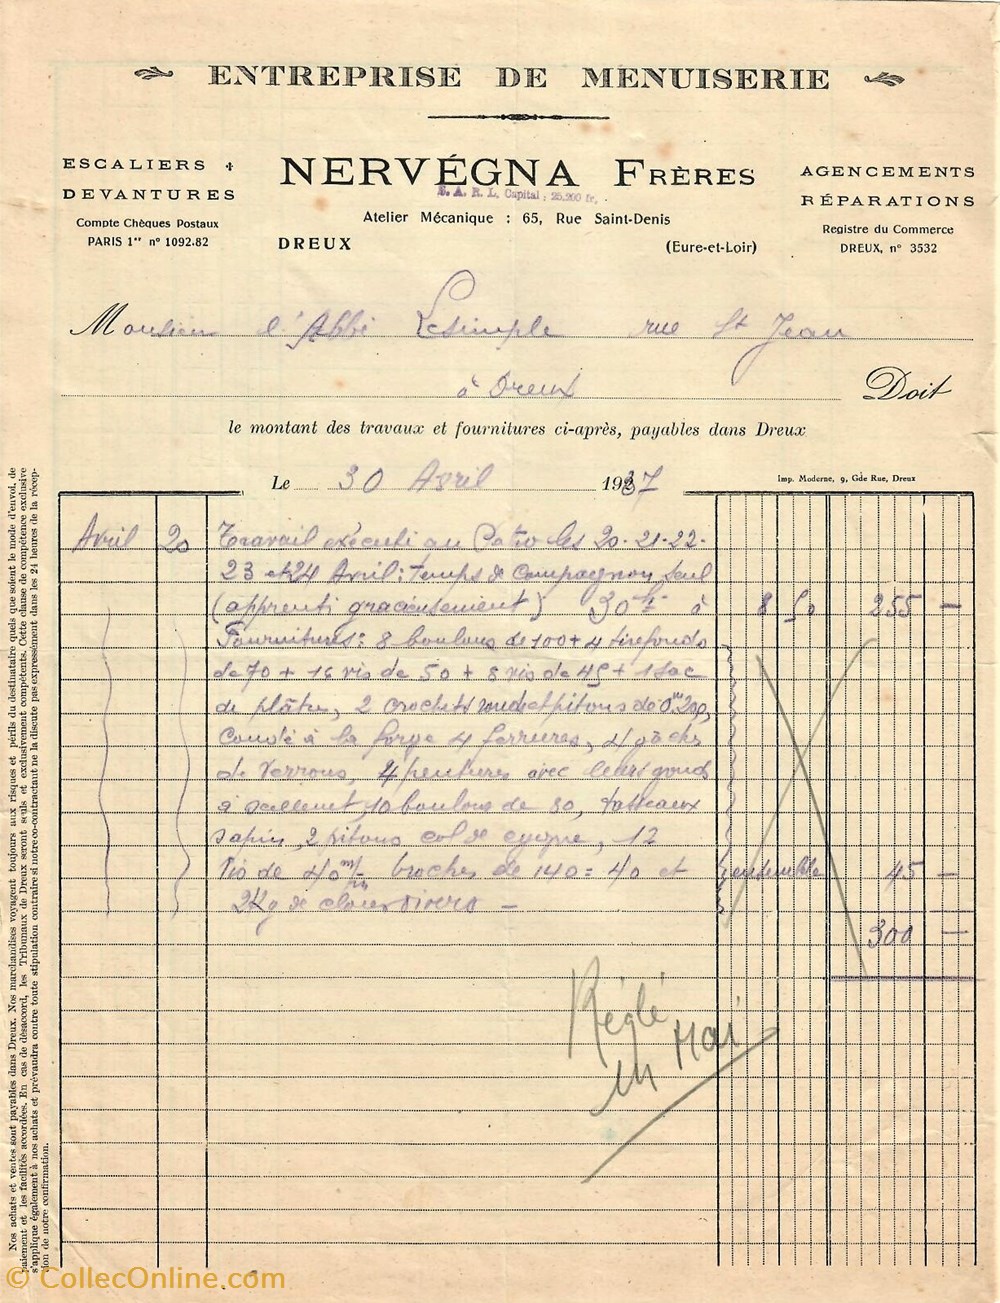 ENTREPRISE DE MENUISERIE
ESCALIERS
DEVANTURES
Compte Chèques Postaux
PARIS 1er n° 1092.82
NERVÉGNA FRÈRES
S. A. R. L. Capital : 25.200 fr.
Atelier Mécanique : 65, Rue Saint-Denis
DREUX (Eure-et-Loir)
AGENCEMENTS
RÉPARATIONS
Registre du Commerce
DREUX, n° 3532
Monsieur l'Abbé Lesimple rue St Jean
à Dreux Doit
le montant des travaux et fournitures ci-après, payables dans Dreux
Le 30 Avril 1937
Imp. Moderne, 9, Gde Rue, Dreux
Avril 20 Travail exécuté au Patro les 20-21-22-
23 et 24 Avril : temps de Compagnon seul
(apprenti gracieusement) 30h à 8 50 255 —
Fournitures : 8 boulons de 100 + 4 tirefonds
de 70 + 16 vis de 50 + 8 vis de 45 + 1 sac
de plâtre, 2 crochets ronds et pitons de 0m200,
Coudé à la forge 4 ferrures, 4 gâches
de verrous, 4 pentures avec leurs gonds
à scellement 10 boulons de 80, tasseaux
sapin, 2 pitons col de cygne, 12
vis de 40 m/m broches de 140 = 40 et ensemble 45 —
2Kg de clous divers —
300 —
Réglé
en Mai
Nos achats et ventes sont payables dans Dreux. Nos marchandises voyagent toujours aux risques et périls du destinataire quels que soient le mode d'envoi, de
paiement et les facilités accordées. En cas de désaccord, les Tribunaux de Dreux seront seuls et exclusivement compétents. Cette clause de compétence exclusive
s'applique également à nos achats et prévaudra contre toute stipulation contraire si notre co-contractant ne la discute pas expressément dans les 24 heures de la récep-
tion de notre confirmation.
© CollecOnline.com